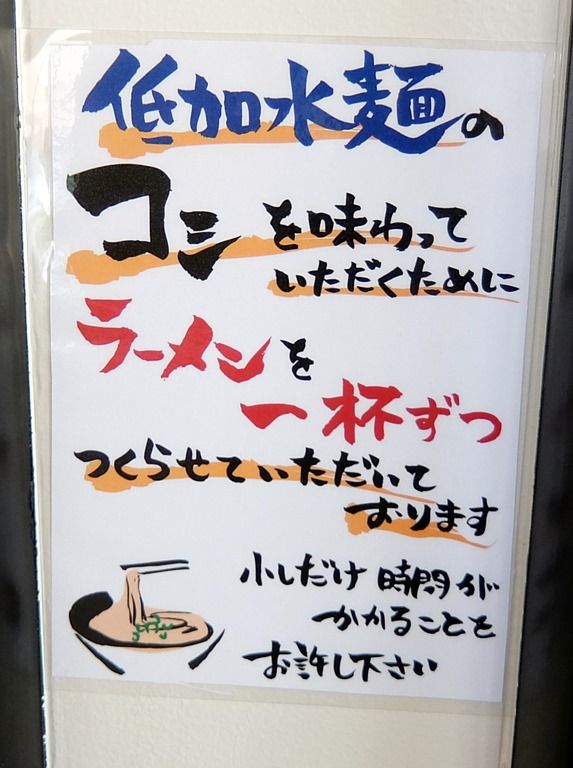 低加水麺の
コシを味わって
いただくために
ラーメンを
一杯ずつ
つくらせていただいて
おります
少しだけ時間が
かかることを
お許し下さい